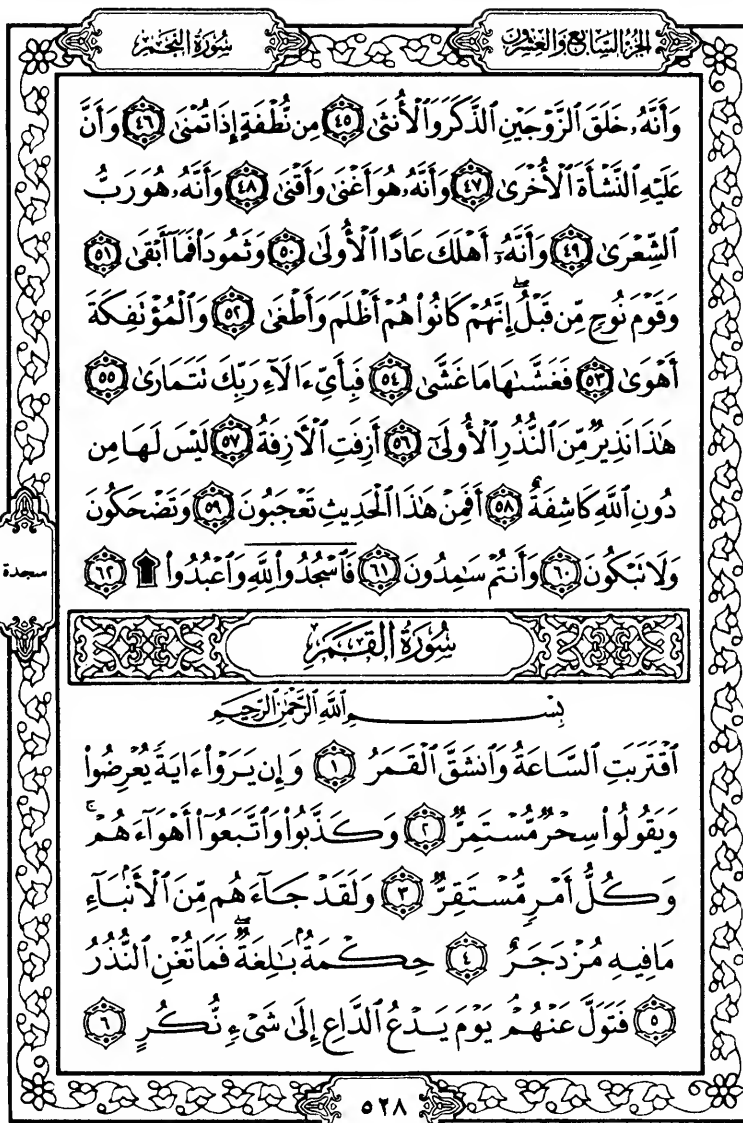 الجزء السابع والعشرون سورة النجم
وَأَنَّهُۥ خَلَقَ ٱلزَّوْجَيْنِ ٱلذَّكَرَ وَٱلْأُنثَىٰ ٤٥ مِن نُّطْفَةٍ إِذَا تُمْنَىٰ ٤٦ وَأَنَّ
عَلَيْهِ ٱلنَّشْأَةَ ٱلْأُخْرَىٰ ٤٧ وَأَنَّهُۥ هُوَ أَغْنَىٰ وَأَقْنَىٰ ٤٨ وَأَنَّهُۥ هُوَ رَبُّ
ٱلشِّعْرَىٰ ٤٩ وَأَنَّهُۥٓ أَهْلَكَ عَادًا ٱلْأُولَىٰ ٥٠ وَثَمُودَا۟ فَمَآ أَبْقَىٰ ٥١
وَقَوْمَ نُوحٍ مِّن قَبْلُ ۖ إِنَّهُمْ كَانُوا۟ هُمْ أَظْلَمَ وَأَطْغَىٰ ٥٢ وَٱلْمُؤْتَفِكَةَ
أَهْوَىٰ ٥٣ فَغَشَّىٰهَا مَا غَشَّىٰ ٥٤ فَبِأَىِّ ءَالَآءِ رَبِّكَ تَتَمَارَىٰ ٥٥
هَٰذَا نَذِيرٌ مِّنَ ٱلنُّذُرِ ٱلْأُولَىٰٓ ٥٦ أَزِفَتِ ٱلْءَازِفَةُ ٥٧ لَيْسَ لَهَا مِن
دُونِ ٱللَّهِ كَاشِفَةٌ ٥٨ أَفَمِنْ هَٰذَا ٱلْحَدِيثِ تَعْجَبُونَ ٥٩ وَتَضْحَكُونَ
وَلَا تَبْكُونَ ٦٠ وَأَنتُمْ سَٰمِدُونَ ٦١ فَٱسْجُدُوا۟ لِلَّهِ وَٱعْبُدُوا۟ ۩ ٦٢
سجدة
سُورَةُ القَمَرِ
بِسْمِ ٱللَّهِ ٱلرَّحْمَٰنِ ٱلرَّحِيمِ
ٱقْتَرَبَتِ ٱلسَّاعَةُ وَٱنشَقَّ ٱلْقَمَرُ ١ وَإِن يَرَوْا۟ ءَايَةً يُعْرِضُوا۟
وَيَقُولُوا۟ سِحْرٌ مُّسْتَمِرٌّ ٢ وَكَذَّبُوا۟ وَٱتَّبَعُوٓا۟ أَهْوَآءَهُمْ ۚ
وَكُلُّ أَمْرٍ مُّسْتَقِرٌّ ٣ وَلَقَدْ جَآءَهُم مِّنَ ٱلْأَنۢبَآءِ
مَا فِيهِ مُزْدَجَرٌ ٤ حِكْمَةٌۢ بَٰلِغَةٌ ۖ فَمَا تُغْنِ ٱلنُّذُرُ
٥ فَتَوَلَّ عَنْهُمْ ۘ يَوْمَ يَدْعُ ٱلدَّاعِ إِلَىٰ شَىْءٍ نُّكُرٍ ٦
٥٢٨